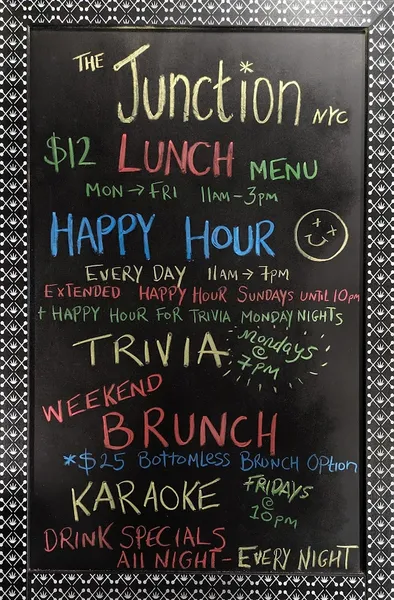 THE Junction NYC
$12 LUNCH MENU
MON → FRI 11AM-3PM
HAPPY HOUR
EVERY DAY 11AM → 7PM
EXTENDED HAPPY HOUR SUNDAYS UNTIL 10PM
+ HAPPY HOUR FOR TRIVIA MONDAY NIGHTS
TRIVIA Mondays @ 7PM
WEEKEND
BRUNCH
*$25 BOTTOMLESS BRUNCH OPTION
KARAOKE FRIDAYS @ 10PM
DRINK SPECIALS
All NIGHT - EVERY NIGHT